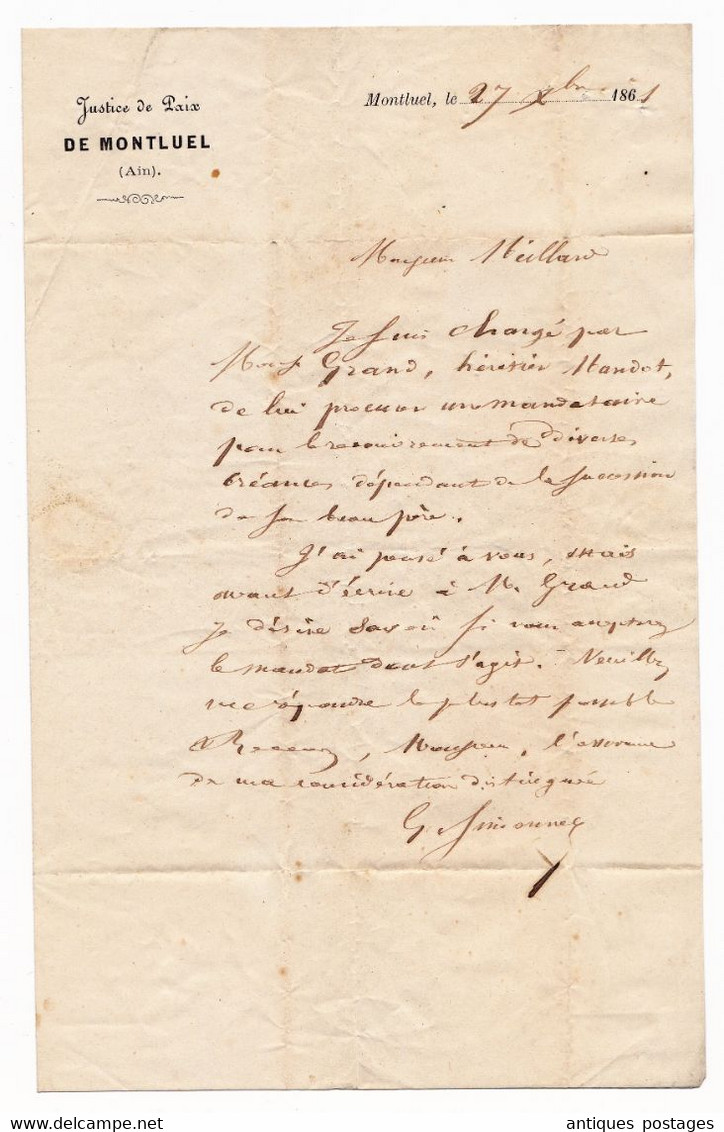 Justice de Paix
DE MONTLUEL
(Ain).
Montluel, le 27 Xbre 1861
Monsieur Meillard
Je suis chargé par
Monsr Grand, héritier Mandot,
de lui procurer un mandataire
pour le recouvrement de diverses
créances dépendant de la succession
de son beau père.
J'ai pensé à vous, mais
avant d'écrire à M. Grand
Je désire savoir si vous acceptez
le mandat dont s'agit. Veuillez
me répondre le plus tot possible
Recevez, Monsieur, l'assurance
de ma considération distinguée
G. Simonnet
antiques postages